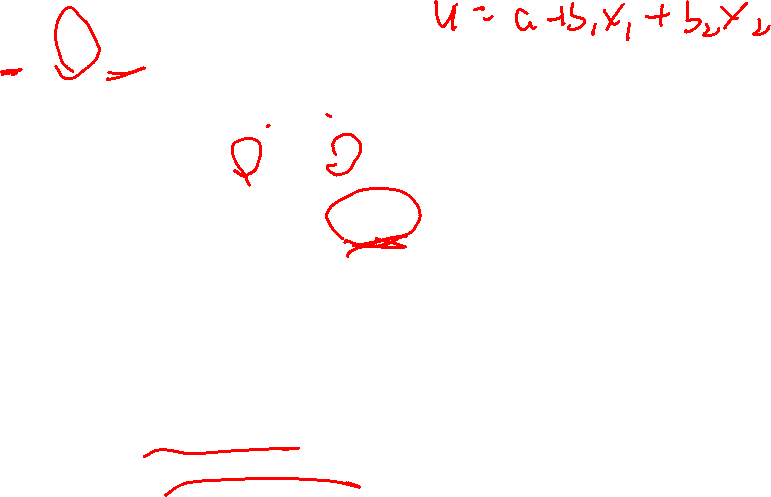 u = a + b₁x₁ + b₂x₂